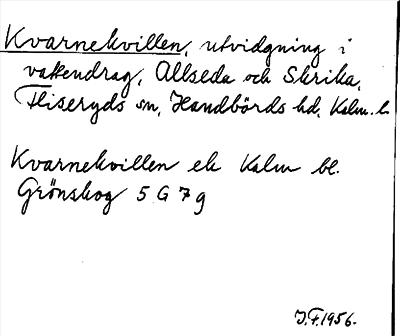 Kvarnekvillen, utvidgning i
vattendrag, Allseda och Skrika,
Fliseryds sn, Handbörds hd, Kalm. l.
Kvarnekvillen ek Kalm bl.
Grönskog 5 G 7 g
J.F. 1956.